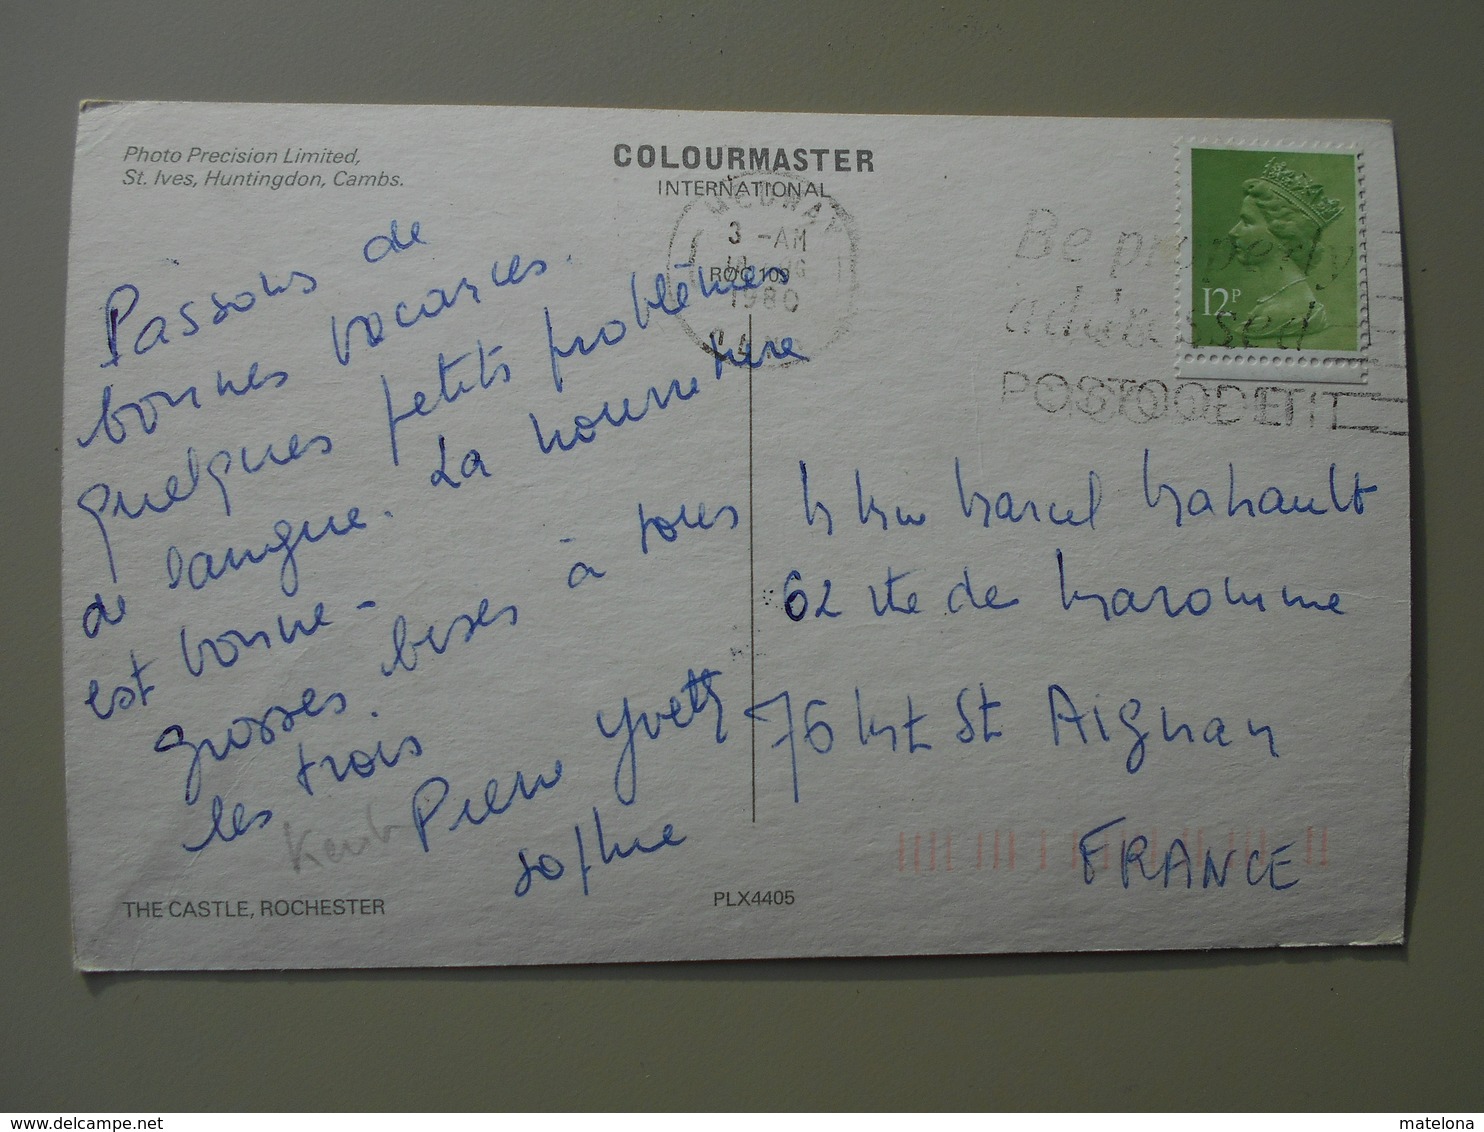 Photo Precision Limited,
St. Ives, Huntingdon, Cambs.
COLOURMASTER
INTERNATIONAL
MEDWAY
3 -AM
1980
ROC 109
Be properly
addressed
POSTCODE IT
12P
Passons de
bonnes vacances.
quelques petits problèmes
de langue. La nourriture
est bonne -
grosses bises à tous
les trois.
Pierre Yvette
Sophie
Kent
Marcel Mahault
62 rte de Maromme
76 Mt St Aignan
FRANCE
THE CASTLE, ROCHESTER
PLX4405
matelona